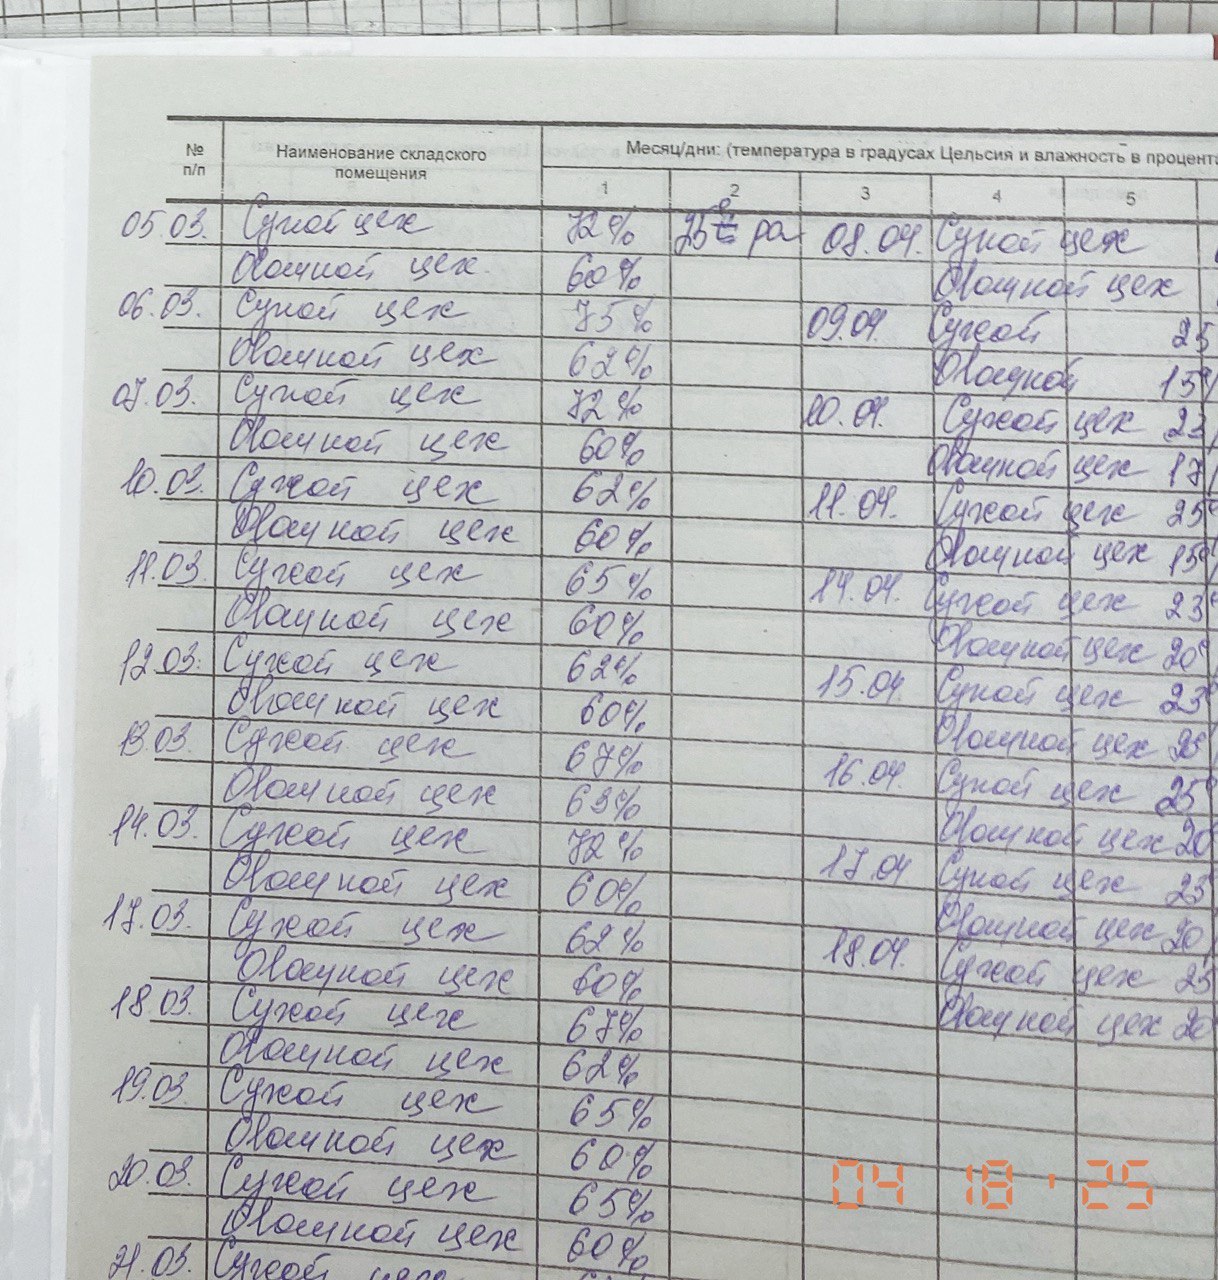 № п/п Наименование складского помещения Месяц/дни: (температура в градусах Цельсия и влажность в процент
1 2 3 4 5
05.03. Сухой цех 72% 08.04. Сухой цех
Овощной цех 60% Овощной цех
06.03. Сухой цех 75% 09.04. Сухой 25
Овощной цех 62% Овощной 15%
07.03. Сухой цех 72% 10.04. Сухой цех 23
Овощной цех 60% Овощной цех 17
10.03. Сухой цех 62% 11.04. Сухой цех 25
Овощной цех 60% Овощной цех 15
11.03. Сухой цех 65% 14.04. Сухой цех 23
Овощной цех 60% Овощной цех 20
12.03. Сухой цех 62% 15.04. Сухой цех 23
Овощной цех 60% Овощной цех
13.03. Сухой цех 67% 16.04. Сухой цех 25
Овощной цех 63% Овощной цех 20
14.03. Сухой цех 72% 17.04 Сухой цех 23
Овощной цех 60% Овощной цех 20
17.03. Сухой цех 62% 18.04. Сухой цех 23
Овощной цех 60% Овощной цех 20
18.03. Сухой цех 67%
Овощной цех 62%
19.03. Сухой цех 65%
Овощной цех 60%
20.03. Сухой цех 65%
Овощной цех 60%
21.03. Сухой цех
04 18 '25